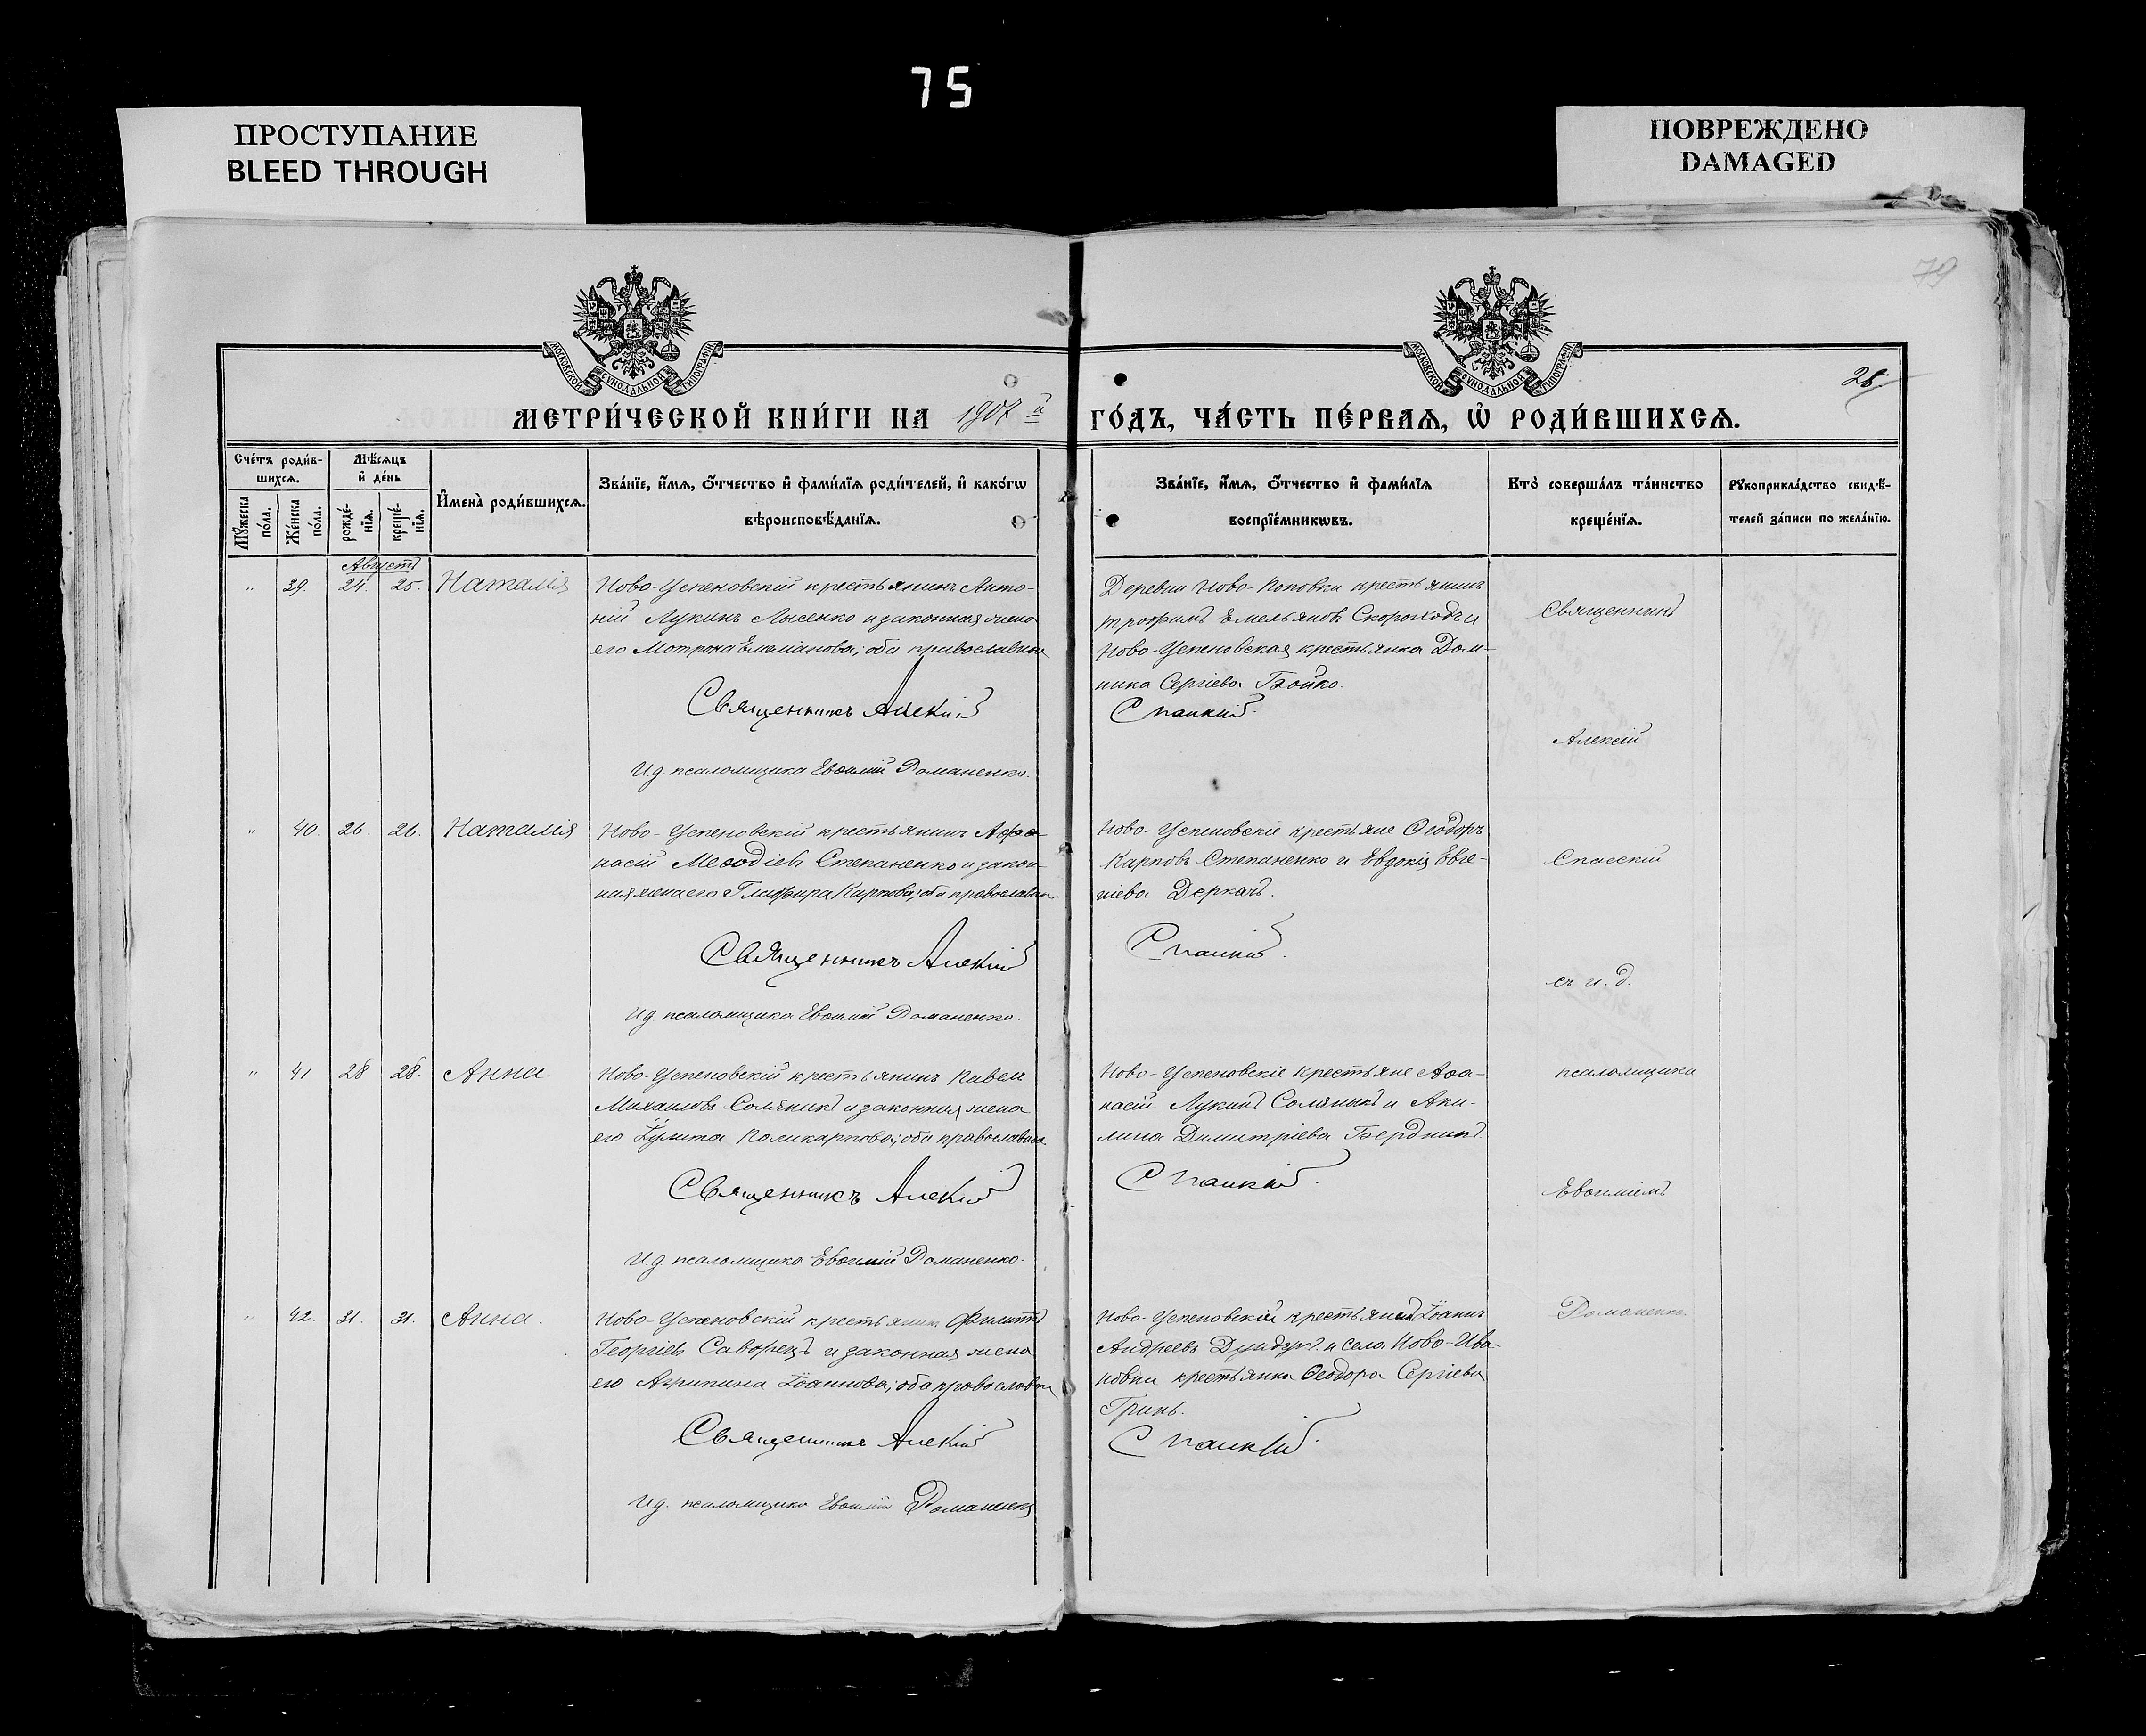 75
ПРОСТУПАНИЕ
BLEED THROUGH
ПОВРЕЖДЕНО
DAMAGED
79
МОСКОВСКОЙ СУНОДАЛЬНОЙ ТИПОГРАФІИ
МОСКОВСКОЙ СУНОДАЛЬНОЙ ТИПОГРАФІИ
28
МЕТРИ́ЧЕСКОЙ КНИ́ГИ НА 1907 й ГО́ДЪ, ЧА́СТЬ ПЕ́РВАЯ, Ѡ РОДИ́ВШИХСЯ.
Сче́тъ роди́в-
шихся.
Мѣ́сяцъ
и де́нь
Мꙋ́жеска
по́ла.
Же́нска
по́ла.
рожде́-
нїя.
креще́-
нїя.
И҆мена̀ роди́вшихся.
Зва́нїе, и҆́мя, ѻ҆́тчество и҆ фами́лїя роди́телей, и҆ како́гѡ
вѣроисповѣ́данїя.
Зва́нїе, и҆́мя, ѻ҆́тчество и҆ фами́лїя
воспрїе́мникѡвъ.
Кто̀ соверша́лъ та́инство
креще́нїя.
Рꙋкоприкла́дство свидѣ́-
телей за́писи по жела́нїю.
Августъ
" 39. 24. 25. Наталія
Ново-Успеновскій крестьянинъ Анто-
ній Лукинъ Лысенко и законная жена
его Мотрона Емеліанова; оба православные
Священникъ Алексій
Ид псаломщика Евѳимій Романенко.
Деревни Ново-Поповки крестьянинъ
Трофимъ Емельяновъ Скороходъ и
Ново-Успеновская крестьянка Дом-
ника Сергіева Бойко.
Спасскій.
" 40. 26. 26. Наталія
Ново-Успеновскій крестьянинъ Афа-
насій Меѳодіевъ Степаненко и закон-
ная жена его Глафира Карпова; оба православные
Священникъ Алексій
Ид псаломщика Евѳимій Романенко.
Ново-Успеновскіе крестьяне Ѳеодоръ
Карповъ Степаненко и Евдокія Евге-
ніева Деркачъ.
Спасскій.
" 41 28 28. Анна.
Ново-Успеновскій крестьянинъ Павелъ
Михаиловъ Соляникъ и законная жена
его Іулита Поликарпова; оба православные
Священникъ Алексій
И.д псаломщика Евѳимій Романенко.
Ново-Успеновскіе крестьяне Аѳа-
насій Лукинъ Соляникъ и Аки-
лина Димитріева Бердникъ.
Спасскій.
" 42. 31. 31. Анна.
Ново-Успеновскій крестьянинъ Филиппъ
Георгіевъ Саворецъ и законная жена
его Агрипина Іоаннова; оба православные
Священникъ Алексій
Ид. псаломщика Евѳимій Романенко
Ново-Успеновскій крестьянинъ Іоаннъ
Андреевъ и села Ново-Ива-
новки крестьянка Ѳеодора Сергіева
Гринь.
Спасскій.
Священникъ
Алексій
Спасскій
съ и. д.
псаломщика
Евѳиміемъ
Романенко.